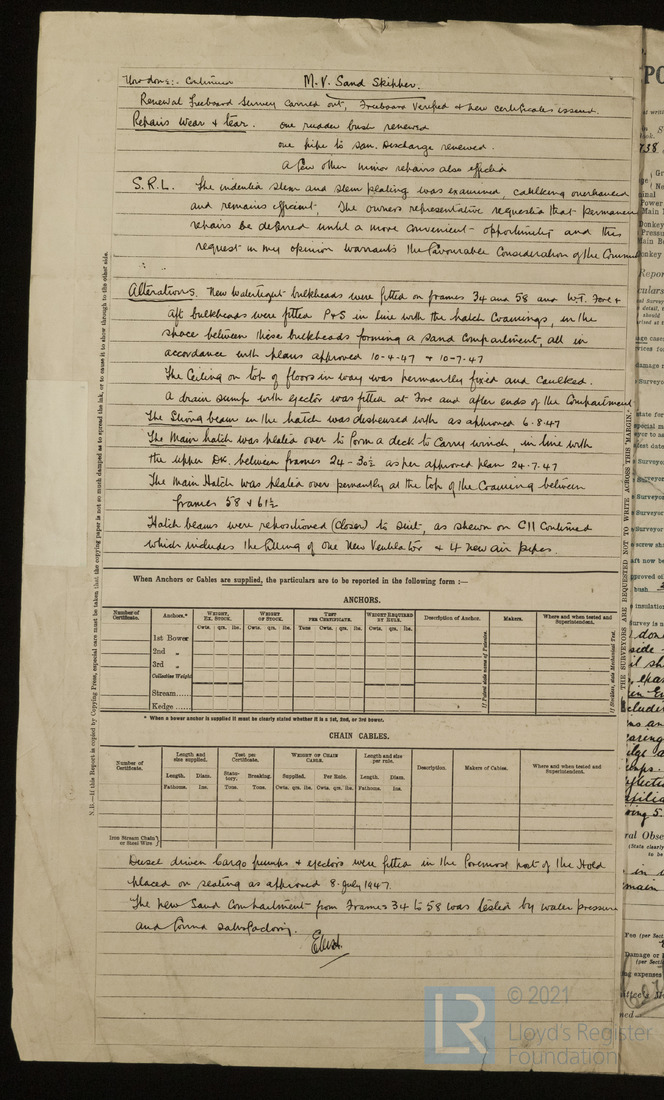 Now done:- Continued M.V. Sand Skipper.
Renewal Freeboard Survey carried out, Freeboard Verified & new certificates issued.
Repairs wear & tear. one rudder bush renewed
one pipe to San. Discharge renewed.
A few other minor repairs also effected
S.R.L. The indented stem and stem plating was examined, caulking overhauled
and remains efficient. The owners representative requested that permanent
repairs be deferred until a more convenient opportunity and this
request in my opinion warrants the favourable consideration of the
Alterations. New Watertight bulkheads were fitted on frames 34 and 58 and W.T. Fore &
aft bulkheads were fitted P&S in line with the hatch Coamings, in the
space between these bulkheads forming a Sand Compartment, all in
accordance with plans approved 10-4-47 & 10-7-47
The Ceiling on top of floors in way was permantly fixed and caulked.
A drain sump with ejector was fitted at Fore and after ends of the Compartment
The Strong beam in the hatch was dispensed with as approved 6.8.47
The Main hatch was plated over to form a deck to carry winch, in line with
the upper DK. between frames 24-30½ as per approved plan 24.7.47
The Main Hatch was plated over permantly at the top of the Coaming between
frames 58 & 61½
Hatch beams were repositioned (closer) to suit, as shewn on C11 Continued
which includes the fitting of one New Ventilator & 4 new air pipes.
When Anchors or Cables are supplied, the particulars are to be reported in the following form :—
ANCHORS.
Number of Certificate. Anchors.* WEIGHT, EX. STOCK. WEIGHT OF STOCK. TEST PER CERTIFICATE. WEIGHT REQUIRED BY RULE. Description of Anchor. Makers. Where and when tested and Superintendent.
Cwts. qrs. lbs. Cwts. qrs. lbs. Tons Cwts. qrs. lbs. Cwts. qrs. lbs.
1st Bower
2nd „
3rd „
Collective Weight
Stream......
Kedge ......
* When a bower anchor is supplied it must be clearly stated whether it is a 1st, 2nd, or 3rd bower.
CHAIN CABLES.
Number of Certificate. Length and size supplied. Test per Certificate. WEIGHT OF CHAIN CABLE. Length and size per rule. Description. Makers of Cables. Where and when tested and Superintendent.
Length. Diam. Statutory. Breaking. Supplied. Per Rule. Length. Diam.
Fathoms. Ins. Tons. Tons. Cwts. qrs. lbs. Cwts. qrs. lbs. Fathoms. Ins.
Iron Stream Chain or Steel Wire
Diesel driven Cargo pumps & ejectors were fitted in the foremost part of the Hold
placed on seating as approved 8-July 1947.
The new Sand Compartment from Frames 34 to 58 was tested by water pressure
and found satisfactory.
N.B.—If this Report is copied by Copying Press, especial care must be taken that the copying paper is not so much damped as to spread the ink, or to cause it to show through to the other side.
THE SURVEYORS ARE REQUESTED NOT TO WRITE ACROSS THIS MARGIN.
LR © 2021
Lloyd's Register
Foundation